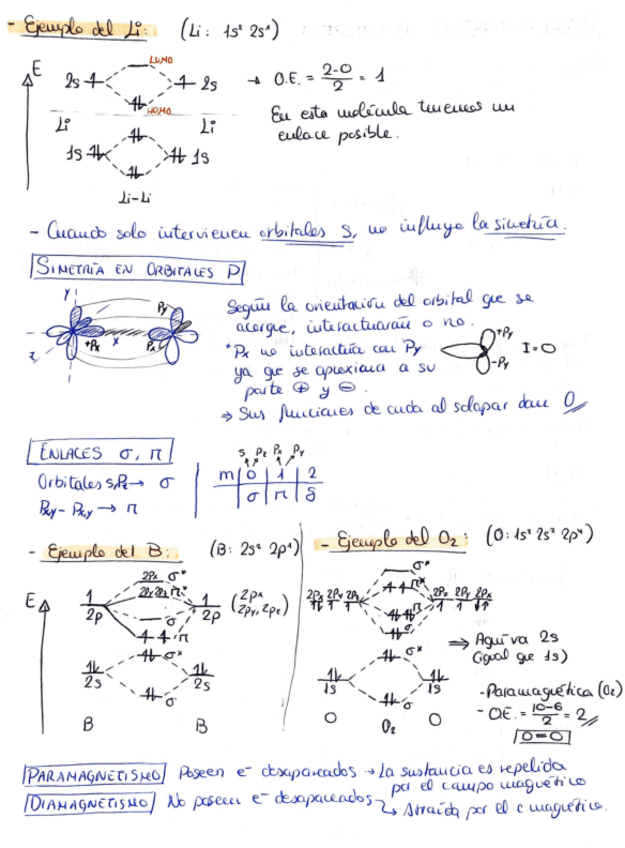 - Ejemplo del Li: (Li: 1s² 2s¹)
E
LUMO
2s 2s → O.E. = 2-0/2 = 1
HOMO
Li Li
En esta molécula tenemos un
enlace posible.
1s 1s
Li-Li
- Cuando solo intervienen orbitales S, no influye la simetría.
SIMETRÍA EN ORBITALES P
y
Py
+Px x Px
z
Según la orientación del orbital que se
acerque, interactuarán o no.
+Px no interactúa con Py
ya que se aproxima a su
parte ⊕ y ⊖.
+Py
-Py
I=0
⇒ Sus funciones de onda al solapar dan 0
ENLACES σ, π
Orbitales s,Pz → σ
Px,y - Px,y → π
s Pz Px Py
m 0 1 2
σ π δ
- Ejemplo del B: (B: 2s² 2p¹)
E
2Px σ*
2Py 2Pz π*
2p 2p
(2px
2py, 2pz)
σ
π
σ*
2s 2s
σ
B B
- Ejemplo del O₂: (O: 1s² 2s² 2p⁴)
σ*
π*
2Px 2Py 2Pz 2Pz 2Py 2Px
π
σ
⇒ Aquí va 2s
(igual que 1s)
σ*
1s 1s
σ
O O₂ O
- Paramagnética (O₂)
- O.E. = 10-6/2 = 2
O=O
PARAMAGNETISMO Poseen e⁻ desapareados → La sustancia es repelida
por el campo magnético
DIAMAGNETISMO No poseen e⁻ desapareados → Atraída por el c magnético.